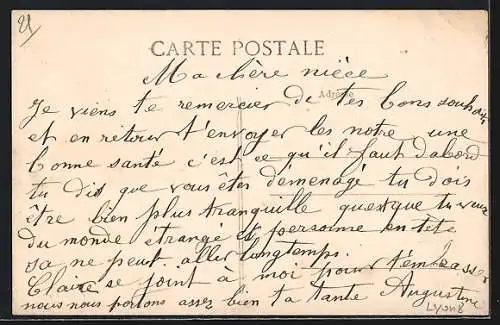 CARTE POSTALE
Ma chère nièce
Adresse
Je viens te remercier de tes bons souhait
et en retour t'envoyer les notre une
bonne santé c'est ce qu'il faut dabord
tu dis que vous êtes démenagé tu dois
être bien plus tranquille quesque tu veux
du monde étrangé personne en tete
sa ne peut aller longtemps.
Claire se joint à moi pour t'embrasser
nous nous portons assez bien ta tante Augustine
Lyon8